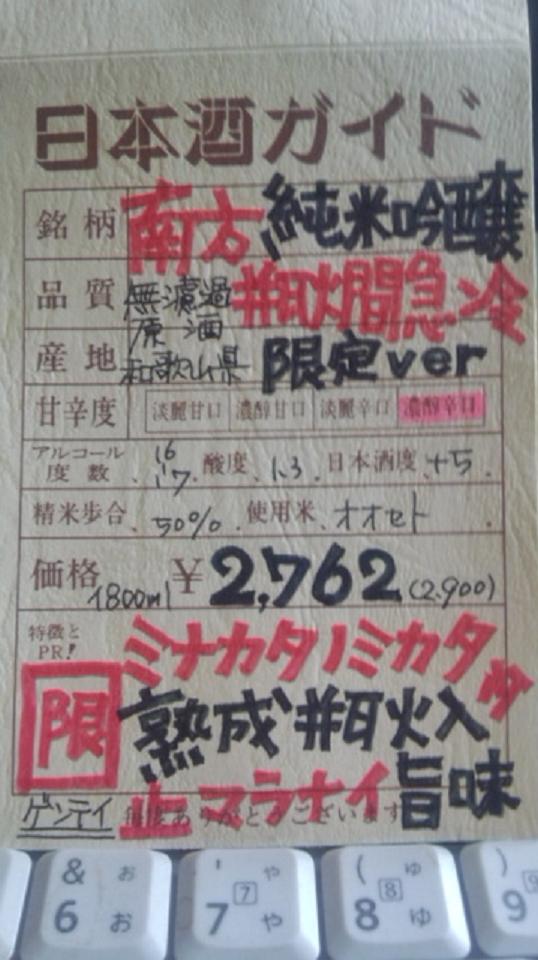 日本酒ガイド
銘柄 南方 純米吟醸
品質 無濾過 瓶燗急冷
原酒
産地 和歌山県 限定ver
甘辛度 淡麗甘口 濃醇甘口 淡麗辛口 濃醇辛口
アルコール度数 16 17 酸度 1.3 日本酒度 +5
精米歩合 50% 使用米 オオセト
価格 1800ml ¥2,762 (2.900)
特徴と ミナカタノミカタ
PR!
限 熟成 瓶火入
止マラナイ 旨味
ゲンテイ 毎度ありがとうございます
& お
6 お
' や
7 7 や
( ゅ
8 8 ゆ
)
9